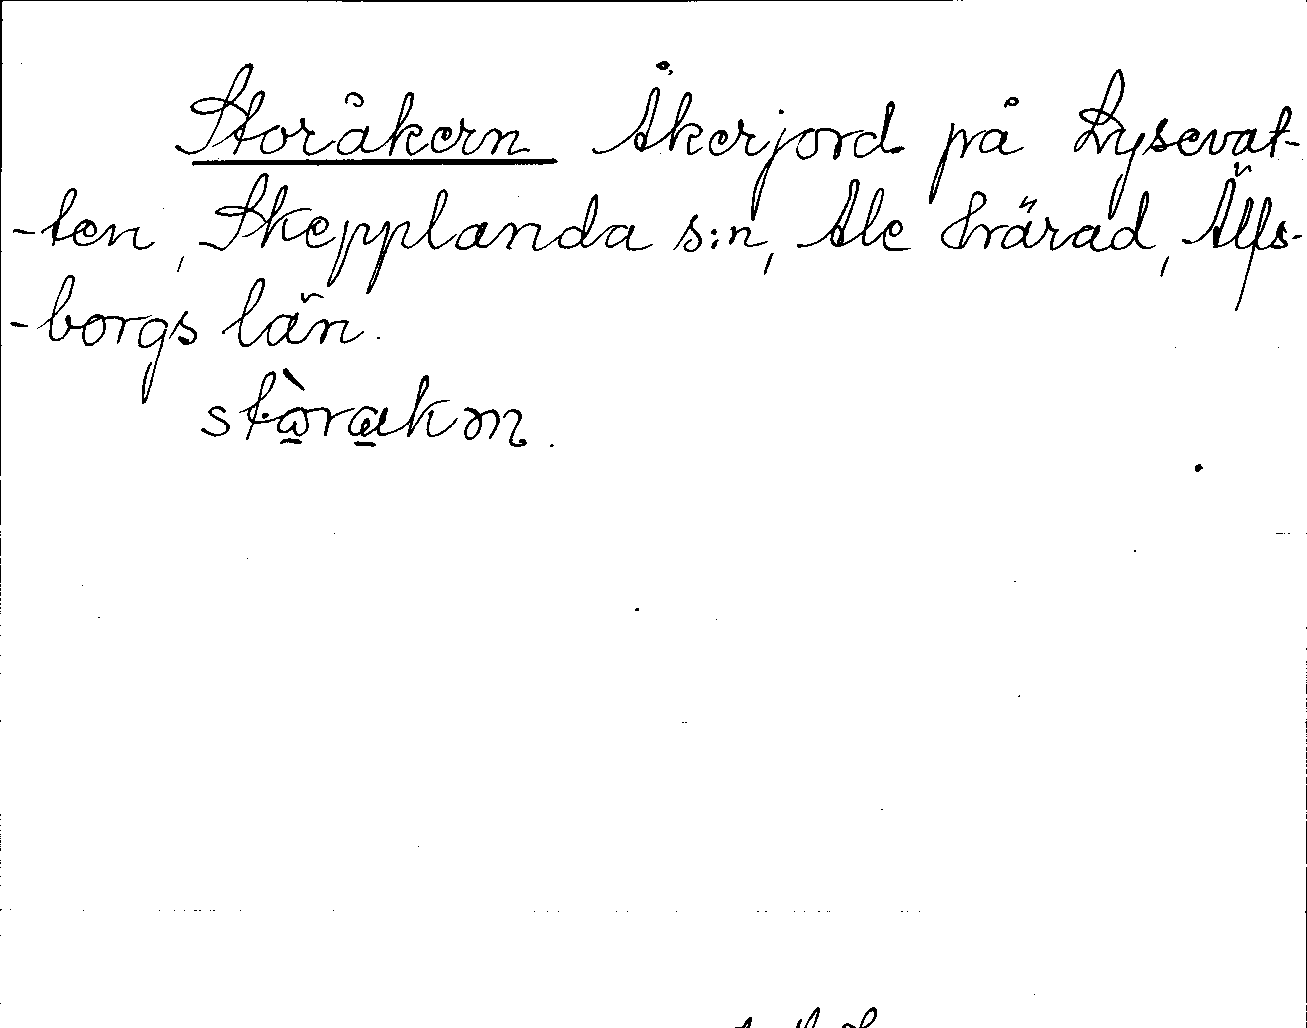 Storåkern Åkerjord på Lysevat-
-ten, Skepplanda s:n, Ale härad, Älfs-
-borgs län.